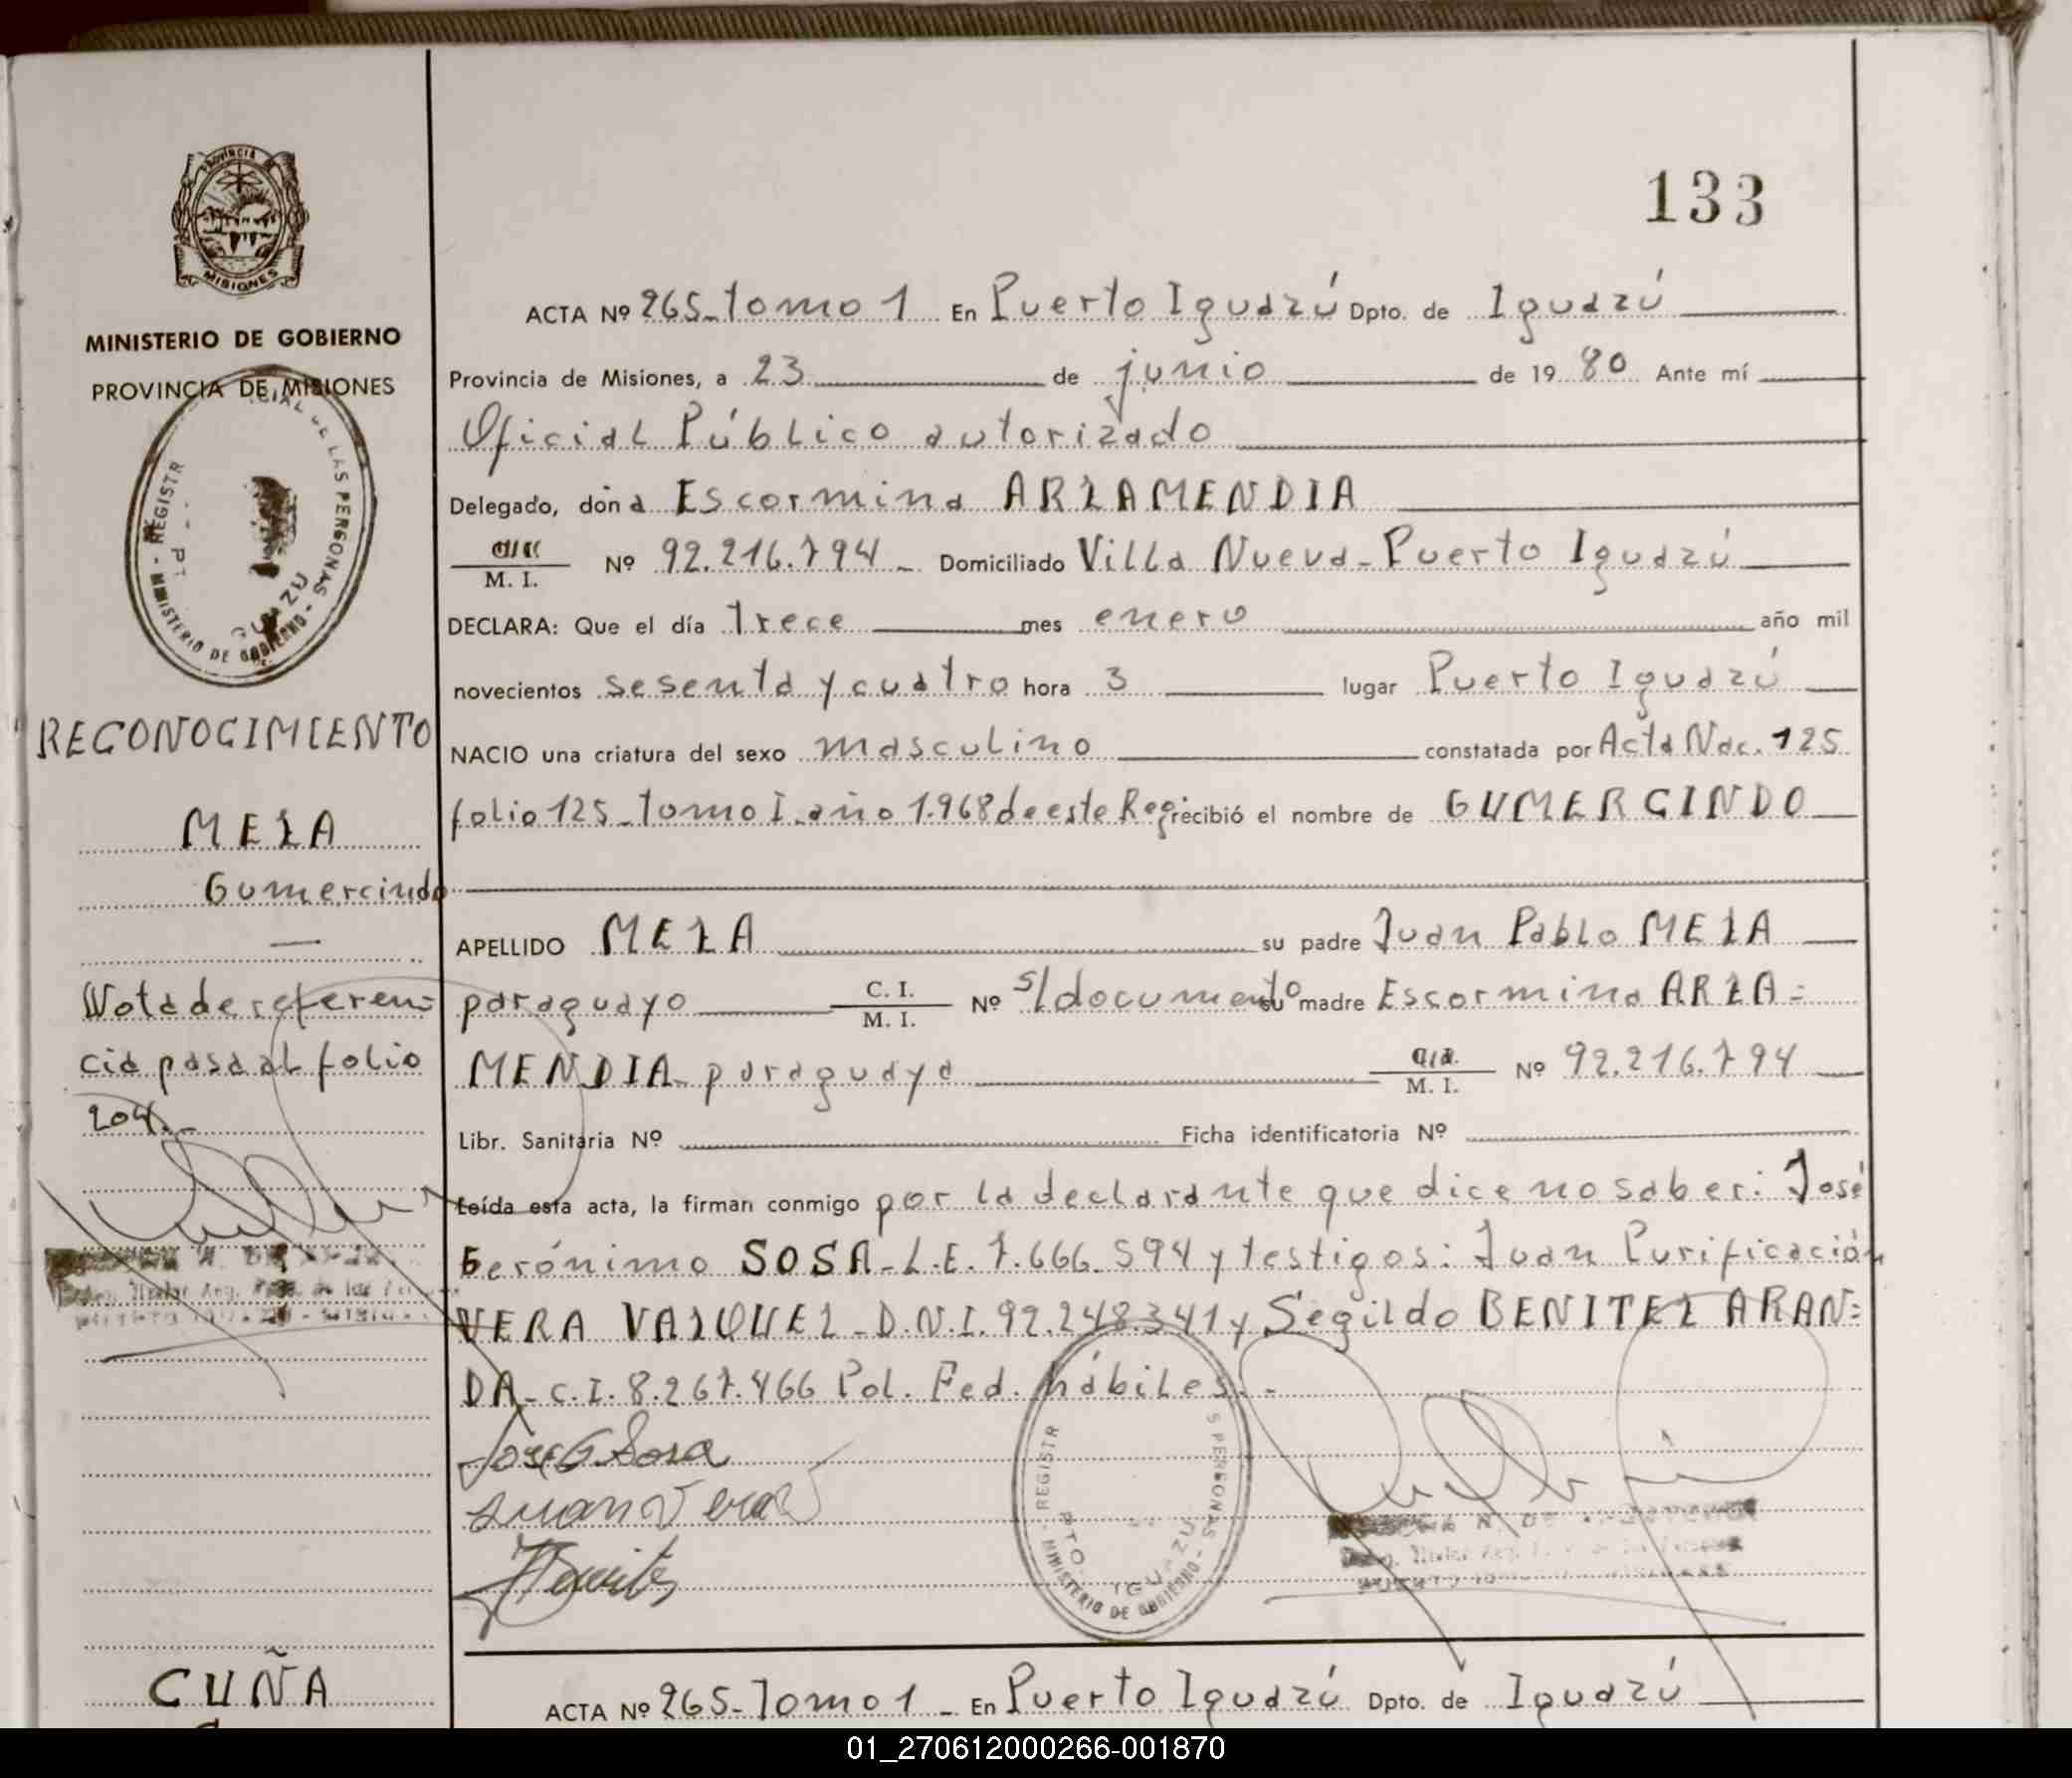 133
PROVINCIA
MISIONES
MINISTERIO DE GOBIERNO
PROVINCIA DE MISIONES
RECONOCIMIENTO
MEZA
Gumercindo
Nota de referen=
cia pasa al folio
204._
ACTA Nº 265_tomo 1 En Puerto Iguazú Dpto. de Iguazú
Provincia de Misiones, a 23 de junio de 19 80 Ante mí
Oficial Público autorizado
Delegado, don a Escormina ARZAMENDIA
M. I. Nº 92.216.794_ Domiciliado Villa Nueva_Puerto Iguazú
DECLARA: Que el día trece mes enero año mil
novecientos sesenta y cuatro hora 3 lugar Puerto Iguazú
NACIO una criatura del sexo masculino constatada por Acta Nac. 125
folio 125_tomo I año 1.968 de este Reg. recibió el nombre de GUMERCINDO
APELLIDO MEZA su padre Juan Pablo MEZA
paraguayo C. I. M. I. Nº s/documento su madre Escormina ARZA=
MENDIA_paraguaya M. I. Nº 92.216.794
Libr. Sanitaria Nº Ficha identificatoria Nº
Leída esta acta, la firman conmigo por la declarante que dice no saber: José
Gerónimo SOSA_L.E. 7.666.594 y testigos: Juan Purificación
VERA VAZQUEZ_D.N.I. 92.248.341 y Segildo BENITEZ ARAN=
DA_C.I. 8.267.466 Pol. Fed. hábiles._
José G. Sosa
Juan Vera
Benitez
REGISTR
PERSONAS
MINISTERIO DE GOBIERNO
PTO. IGUAZU
CUÑA
ACTA Nº 265_Tomo 1 _ En Puerto Iguazú Dpto. de Iguazú
01_270612000266-001870